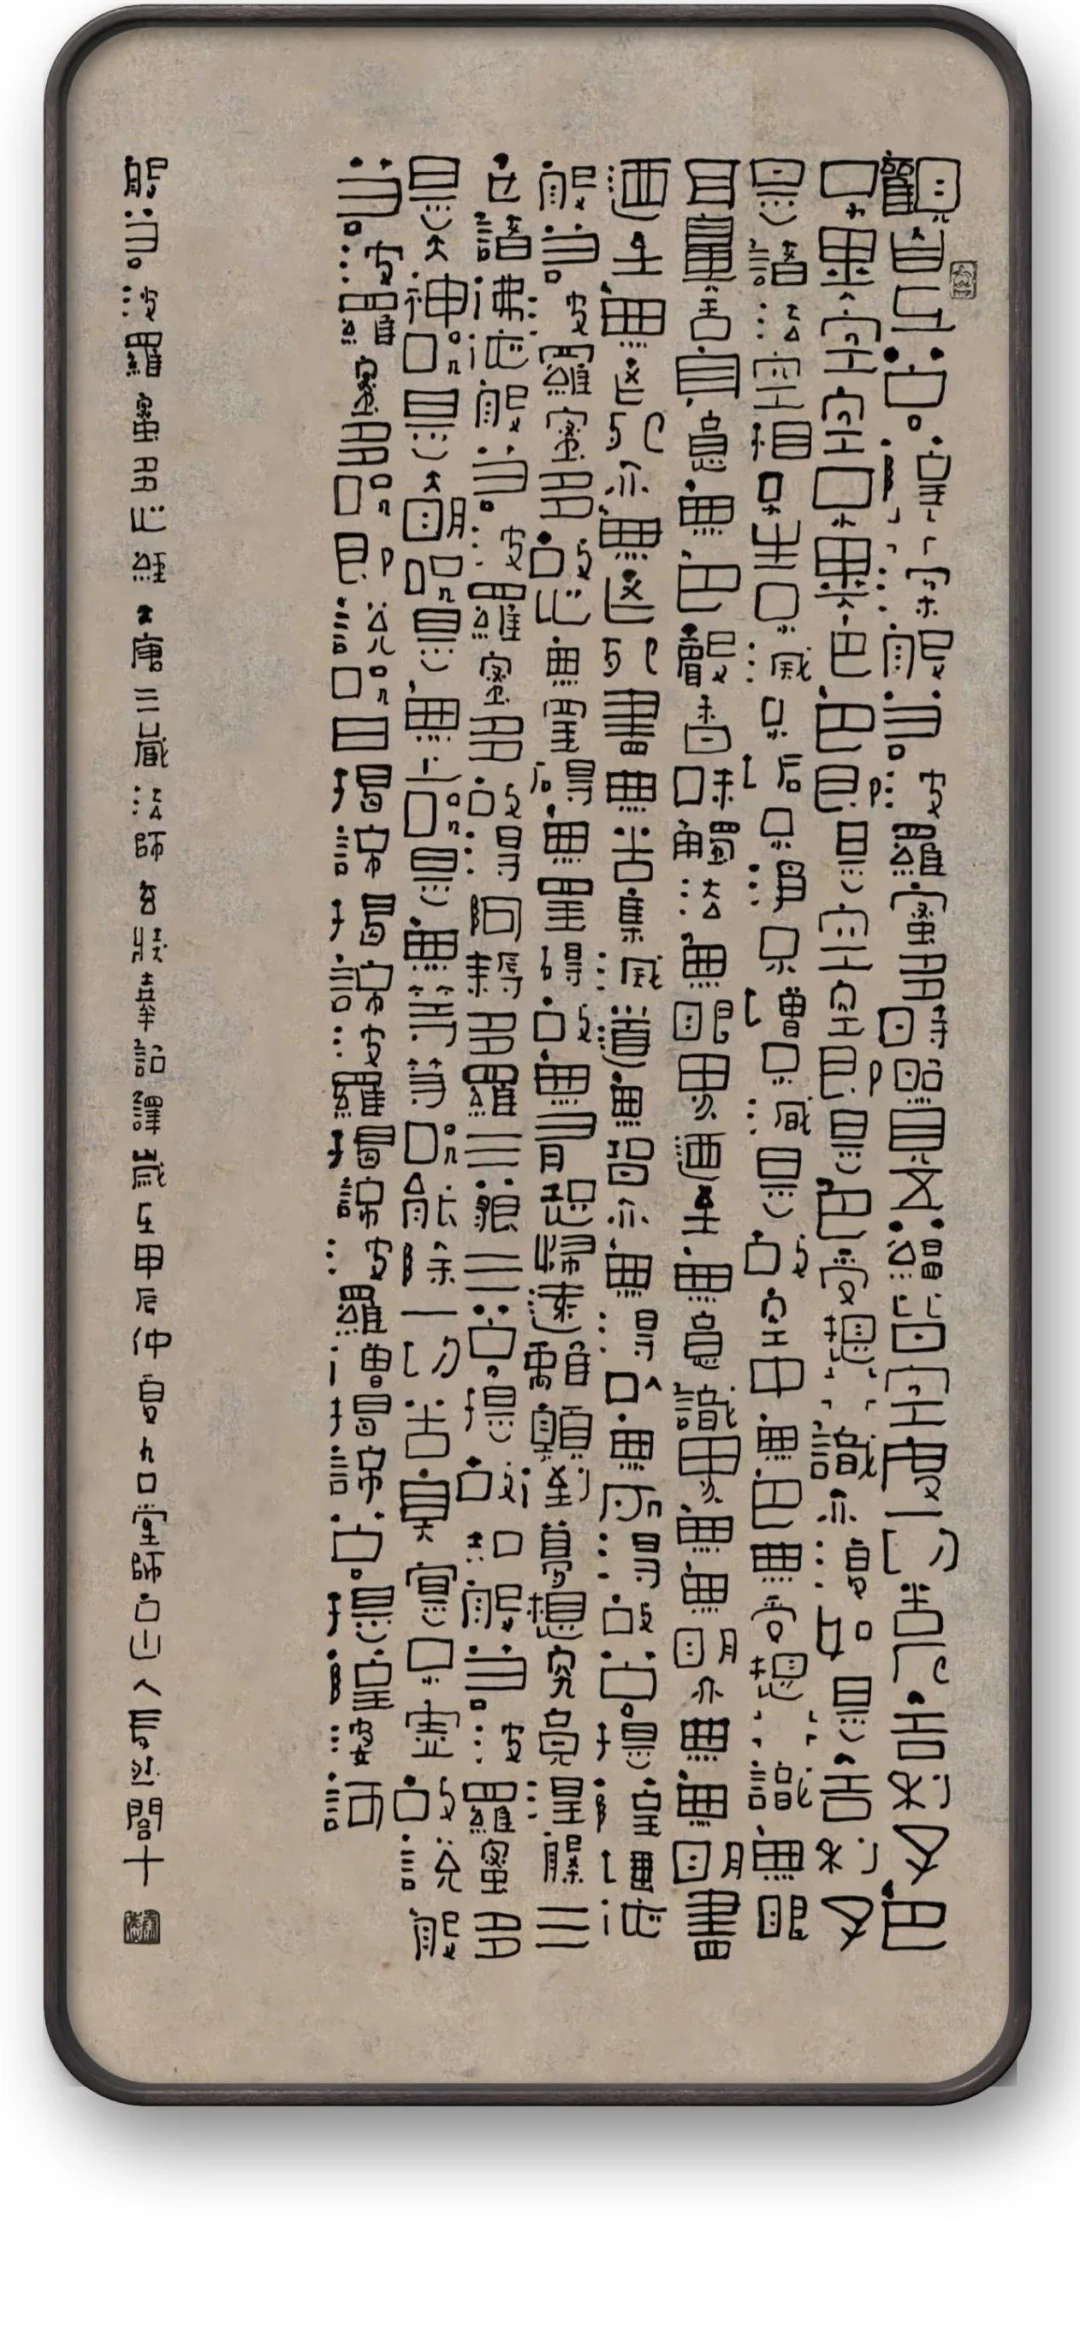 觀自在菩薩行深般若波羅蜜多時照見五蘊皆空度一切苦厄舍利子色
不異空空不異色色即是空空即是色受想行識亦復如是舍利子
是諸法空相不生不滅不垢不淨不增不減是故空中無色無受想行識無眼
耳鼻舌身意無色聲香味觸法無眼界乃至無意識界無無明亦無無明盡
乃至無老死亦無老死盡無苦集滅道無智亦無得以無所得故菩提薩埵依
般若波羅蜜多故心無罣礙無罣礙故無有恐怖遠離顛倒夢想究竟涅槃三
世諸佛依般若波羅蜜多故得阿耨多羅三藐三菩提故知般若波羅蜜多
是大神咒是大明咒是無上咒是無等等咒能除一切苦真實不虛故說般
若波羅蜜多咒即說咒曰揭諦揭諦波羅揭諦波羅僧揭諦菩提薩婆訶
般若波羅蜜多心經大唐三藏法師玄奘奉詔譯歲在甲辰仲夏